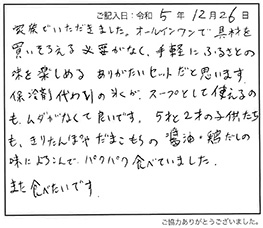 ご記入日：令和 5 年 12 月 26 日
家族でいただきました。オールインワンで具材を
買いそろえる必要がなく、手軽にふるさとの
味を楽しめるありがたいセットだと思います。
保冷剤代わりの氷が、スープとして使えるの
も、ムダがなくて良いです。5才と2才の子供たち
も、きりたんぽやだまこもちの醤油・鶏だしの
味によろこんで、パクパク食べていました。
また食べたいです。
ご協力ありがとうございました。